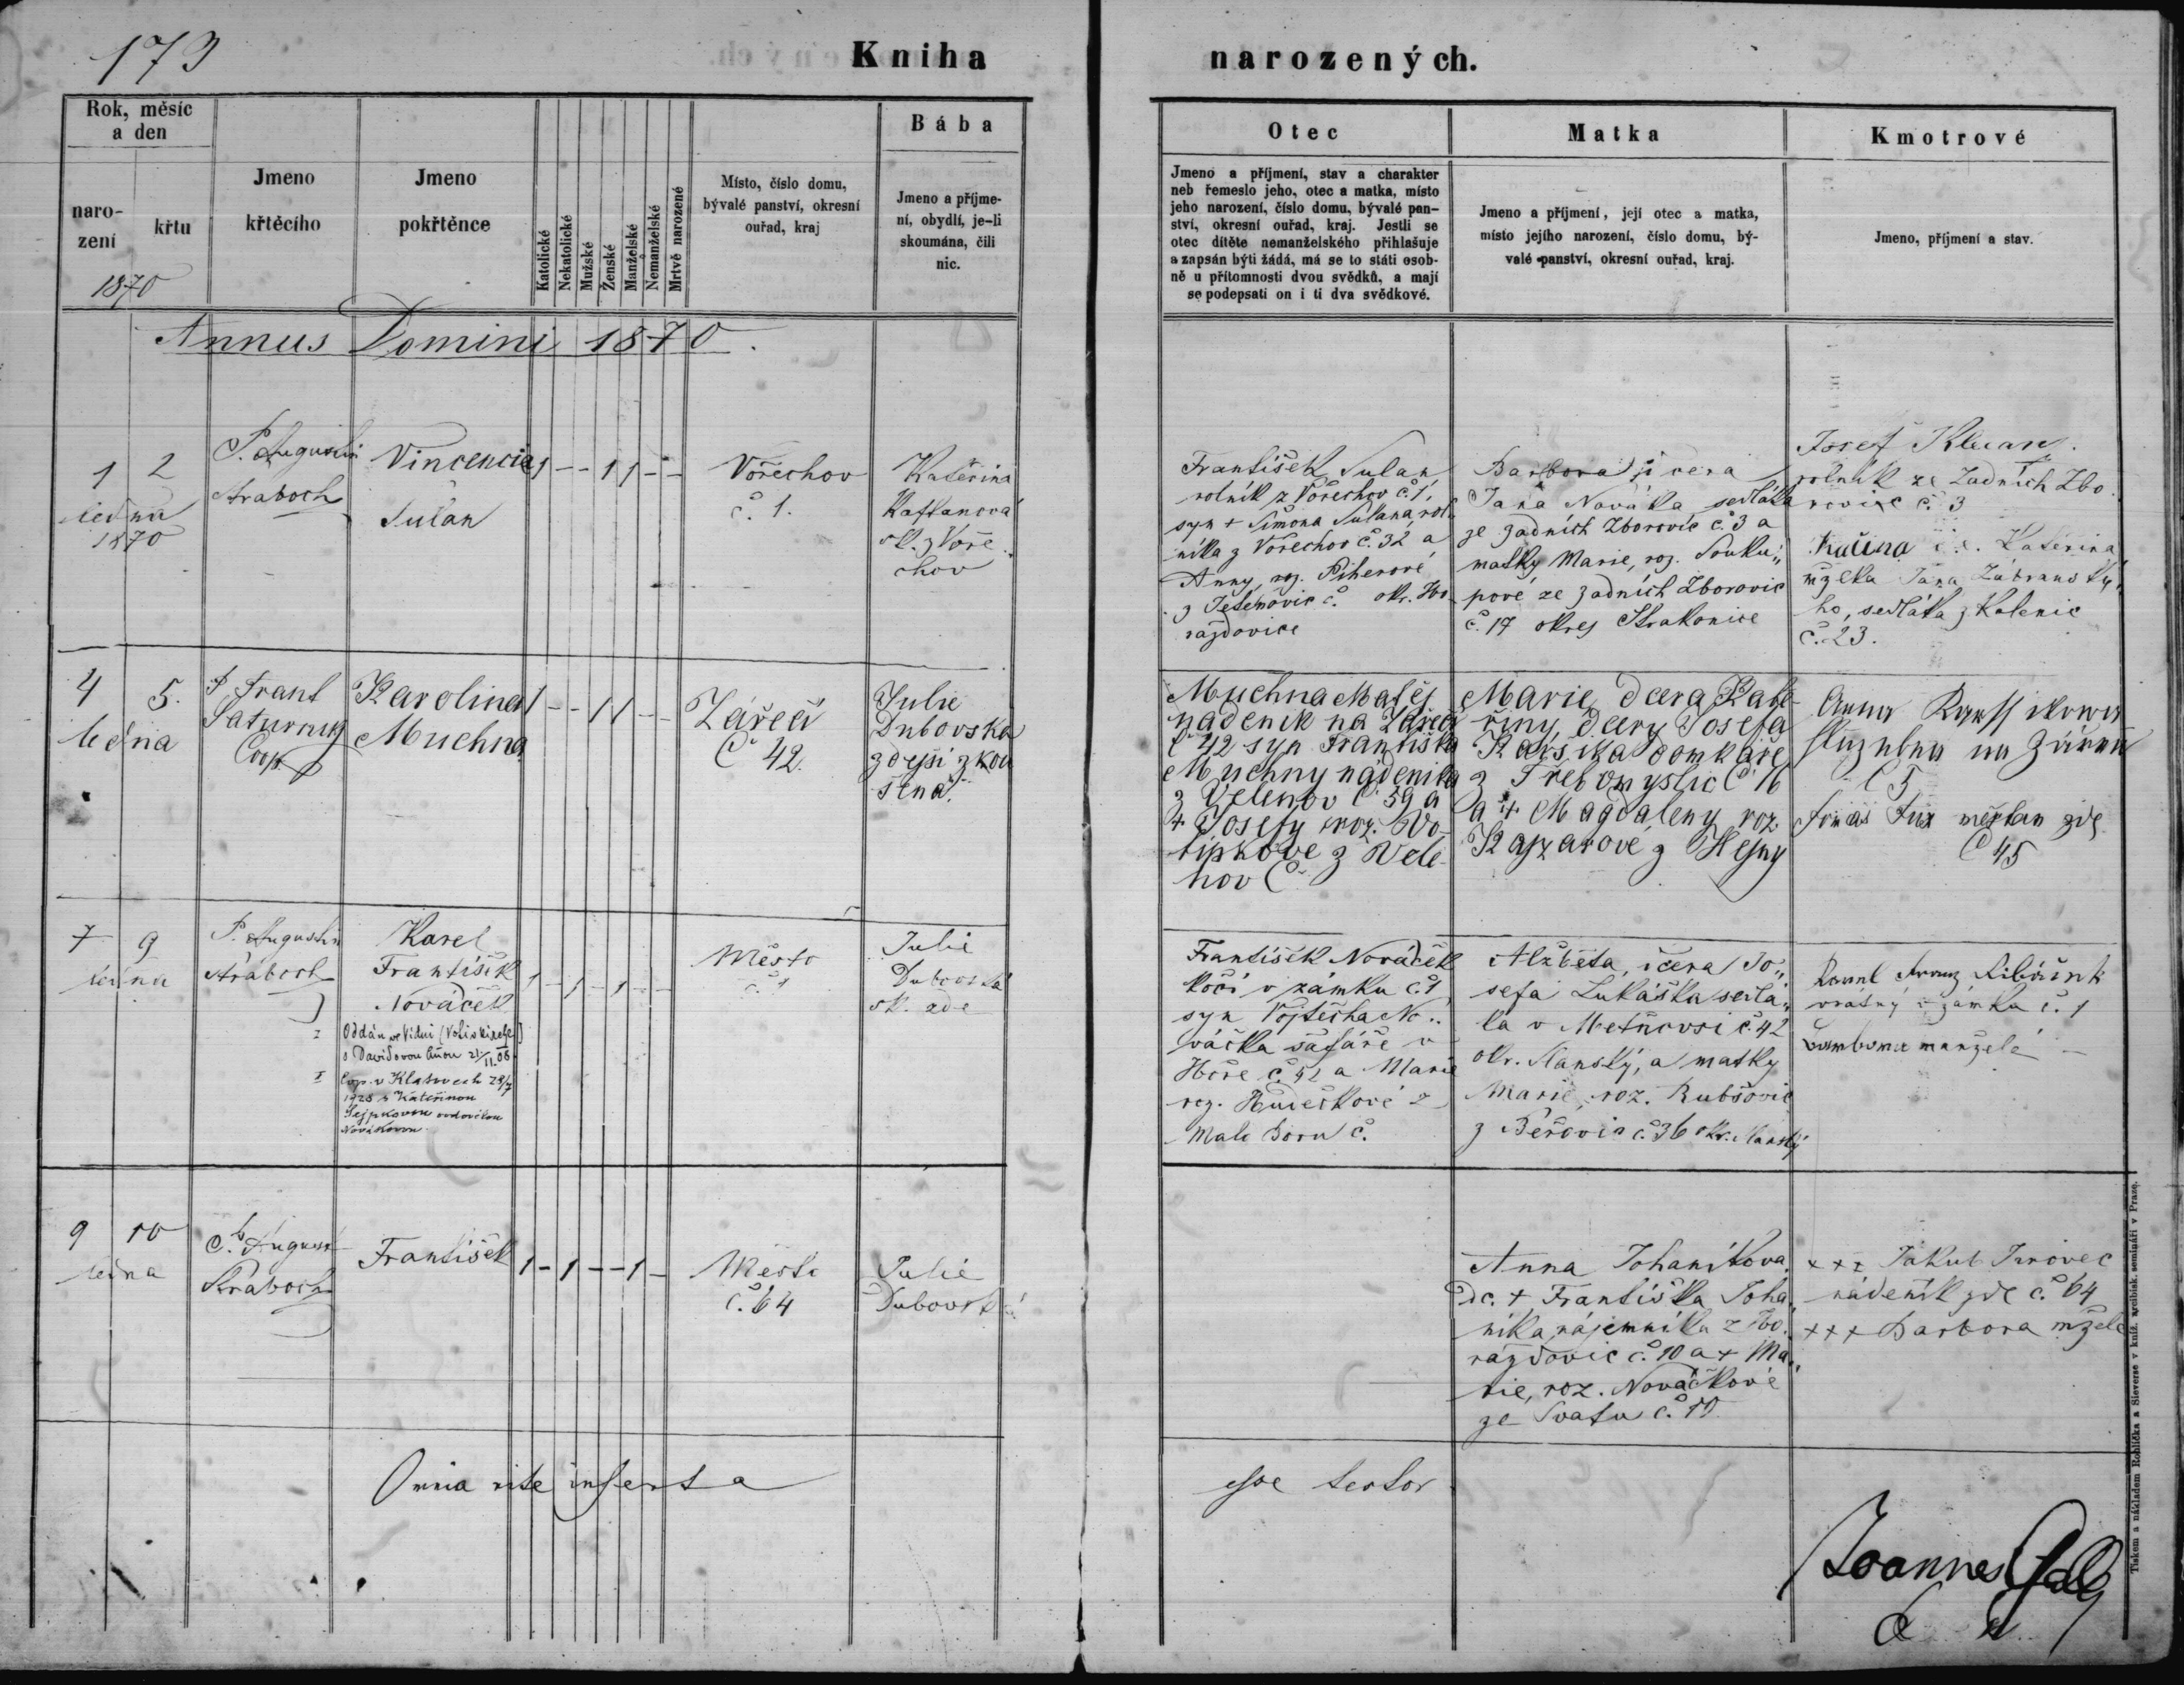 173
Kniha
narozených.
Rok, měsíc
a den
naro-
zení
křtu
1870
Jmeno
křtěcího
Jmeno
pokřtěnce
Katolické
Nekatolické
Mužské
Ženské
Manželské
Nemanželské
Mrtvě narozené
Místo, číslo domu,
bývalé panství, okresní
ouřad, kraj
Bába
Jmeno a příjme-
ní, obydlí, je-li
skoumána, čili
nic.
Otec
Jmeno a příjmení, stav a charakter
neb řemeslo jeho, otec a matka, místo
jeho narození, číslo domu, bývalé pan-
ství, okresní ouřad, kraj. Jestli se
otec dítěte nemanželského přihlašuje
a zapsán býti žádá, má se to státi osob-
ně u přítomnosti dvou svědků, a mají
se podepsati on i ti dva svědkové.
Matka
Jmeno a příjmení, její otec a matka,
místo jejího narození, číslo domu, bý-
valé panství, okresní ouřad, kraj.
Kmotrové
Jmeno, příjmení a stav.
Annus Domini 1870.
1 2
ledna
1870
P. Augustin
Straboch
Vincencia
Sulan
1 - - 1 1 - -
Vořechov
č. 1.
Kateřina
Kaftanová
sk. z Voře
chov
František Sulan
rolník z Vořechov č. 1,
syn + Šimona Sulana, rol
níka z Vořechov č. 32 a
Anny, roz. Piherové
z Jetenovic č. okr. Ho
ražďovice
Barbora, dcera
Jana Nováka, sedláka
ze zadních Zborovic č. 3 a
matky Marie, roz. Souku„
pové ze zadních Zborovic
č. 17 okres Strakonice
Josef
rolník ze Zadních Zbo
rovic č. 3
Kateřina
mželka Jana Zábranský„
ho, sedláka z Kalenic
č. 23.
4 5.
ledna
P Frant
Saturnus
Coop.
Karolina
Muchna
1 - - 1 1 - -
Zářečí
Č 42.
Julie
Dubovska
zdejší zkou
šená.
Muchna Matěj
nádeník na Zářečí
č 42 syn Františka
Muchny nádeníka
z Velenov č. 59 a
+ Josefy roz. Vo-
tipkove z Vele-
nov Č
Marie dcera Kate-
řiny, dcery Josefa
Karsika domkaře
z Třebomyslic Č 16
a + Magdaleny roz.
Kasparové z Hejny
Anna
na
Č 5
Tomáš Fux měšťan zde
Č 45
7 9
ledna
P. Augustin
Straboch
Karel
František
Nováček
I Oddán ve Vídni
s Davidovou Annou 21/11.08
I Cop. v Klatovech 28/7
1928 s Kateřinou
Šejpkovou ovdovělou
Novákovou
1 - 1 - 1 - -
Město
č. 1
Julie
Dubovská
sk. zde
František Nováček
kočí v zámku č. 1
syn Vojtěcha No„
váčka šafáře v
Hoře č. 42 a Marie
roz. Hudečkové z
Malo Boru č.
Alžběta, dcera Jo„
sefa Lukáška sedlá„
ka v Metřovsi č. 42
okr. Slanský, a matky
Marie, roz. Rubšovié
z Beřovic č. 36 okr. Slanský
vrátný v zámku č. 1
Barbora manželé
9 10
ledna
P. August
Straboch
František
1 - 1 - - 1 -
Město
č. 64
Julie
Dubovská
Anna Johaníkova
dc. + Františka Joha„
níka, nájemníka z Ho„
ražďovic č. 10 a + Ma„
rie, roz. Nováčkové
ze Svatu č. 19
+++ Jakub Jirovec
nádeník zde č. 64
+++ Barbora mžele
Omnia rite inserta
esse testor
Joannes
Tiskem a nákladem Rohlíčka a Sieverse v kníž. arcibisk. semináři v Praze.